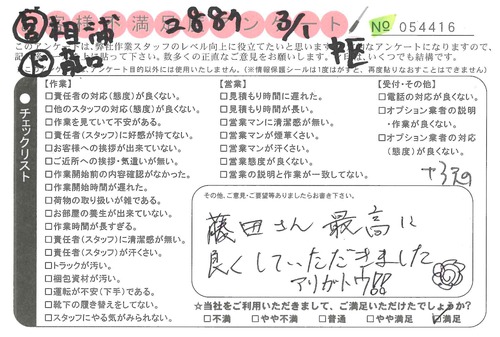 お客様満足度アンケート № 054416
営 相浦 2887 3/1
このアンケートは、弊社作業スタッフのレベル向上に役立てたいと思います
下さい。多数の正直なご意見をお願いします。いくつでも結構です。
アンケート目的以外には使用いたしません。(※情報保護シールは1度はがすと、再度貼りなおすことはできません)
チェックリスト
【作業】
□責任者の対応(態度)が良くない。
□他のスタッフの対応(態度)が良くない。
□作業を見ていて不安がある。
□責任者(スタッフ)に好感が持てない。
□お客様への挨拶が出来ていない。
□ご近所への挨拶・気遣いが無い。
□作業開始前の内容確認がなかった。
□作業開始時間が遅れた。
□荷物の取り扱いが雑である。
□お部屋の養生が出来ていない。
□作業時間が長すぎる。
□責任者(スタッフ)に清潔感が無い。
□責任者(スタッフ)が汗くさい。
□トラックが汚い。
□梱包資材が汚い。
□運転が不安(下手)である。
□靴下の履き替えをしてない。
□スタッフにやる気がみられない。
【営業】
□見積もり時間に遅れた。
□見積もり時間が長い。
□営業マンに清潔感が無い。
□営業マンが煙草くさい。
□営業マンが汗くさい。
□営業態度が良くない。
□営業の説明と作業が一致してない。
【受付・その他】
□電話の対応が良くない。
□オプション業者の説明
・作業が良くない。
□オプション業者の対応
(態度)が良くない。
その他、ご意見・ご要望等ありましたらお書き下さい。
藤田さん 最高に
良くしていただきました
アリガトウ!!
☆当社をご利用いただきまして、ご満足いただけたでしょうか?
□不満 □やや不満 □普通 □やや満足 □満足